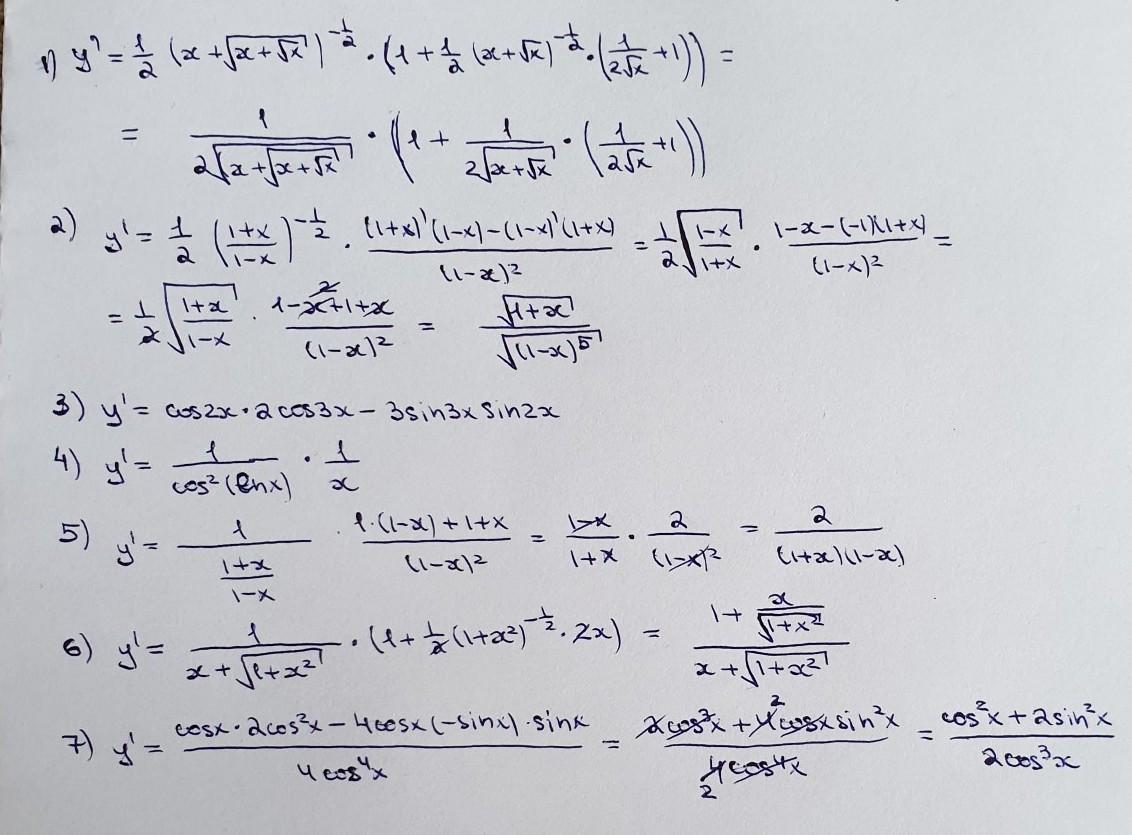 1) y' = 1/2 (x + √(x + √x))^(-1/2) · (1 + 1/2 (x + √x)^(-1/2) · (1/(2√x) + 1)) =
= 1/(2√(x + √(x + √x))) · (1 + 1/(2√(x + √x)) · (1/(2√x) + 1))
2) y' = 1/2 ((1+x)/(1-x))^(-1/2) · ((1+x)'(1-x) - (1-x)'(1+x))/(1-x)² = 1/2 √((1-x)/(1+x)) · (1-x-(-1)(1+x))/(1-x)² =
= 1/2 √((1+x)/(1-x)) · (1-x+1+x)/(1-x)² 2 = √(1+x)/√((1-x)⁵)
3) y' = cos2x · 2cos3x - 3sin3x sin2x
4) y' = 1/(cos²(lnx)) · 1/x
5) y' = 1/((1+x)/(1-x)) · (1·(1-x)+1+x)/(1-x)² = (1-x)/(1+x) · 2/(1-x)² = 2/((1+x)(1-x))
6) y' = 1/(x + √(1+x²)) · (1 + 1/2 (1+x²)^(-1/2) · 2x) = (1 + x/√(1+x²))/(x + √(1+x²))
7) y' = (cosx · 2cos²x - 4cosx(-sinx) · sinx)/(4cos⁴x) = (2cos³x + 4cosx sin²x)/(4cos⁴x) 2 2 = (cos²x + 2sin²x)/(2cos³x)